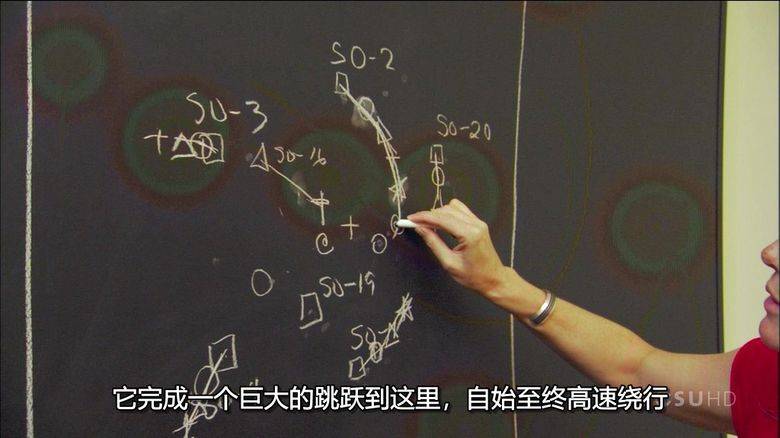 SO-2
SO-3
SO-20
SO-16
SO-19
它完成一个巨大的跳跃到这里，自始至终高速绕行
SUHD